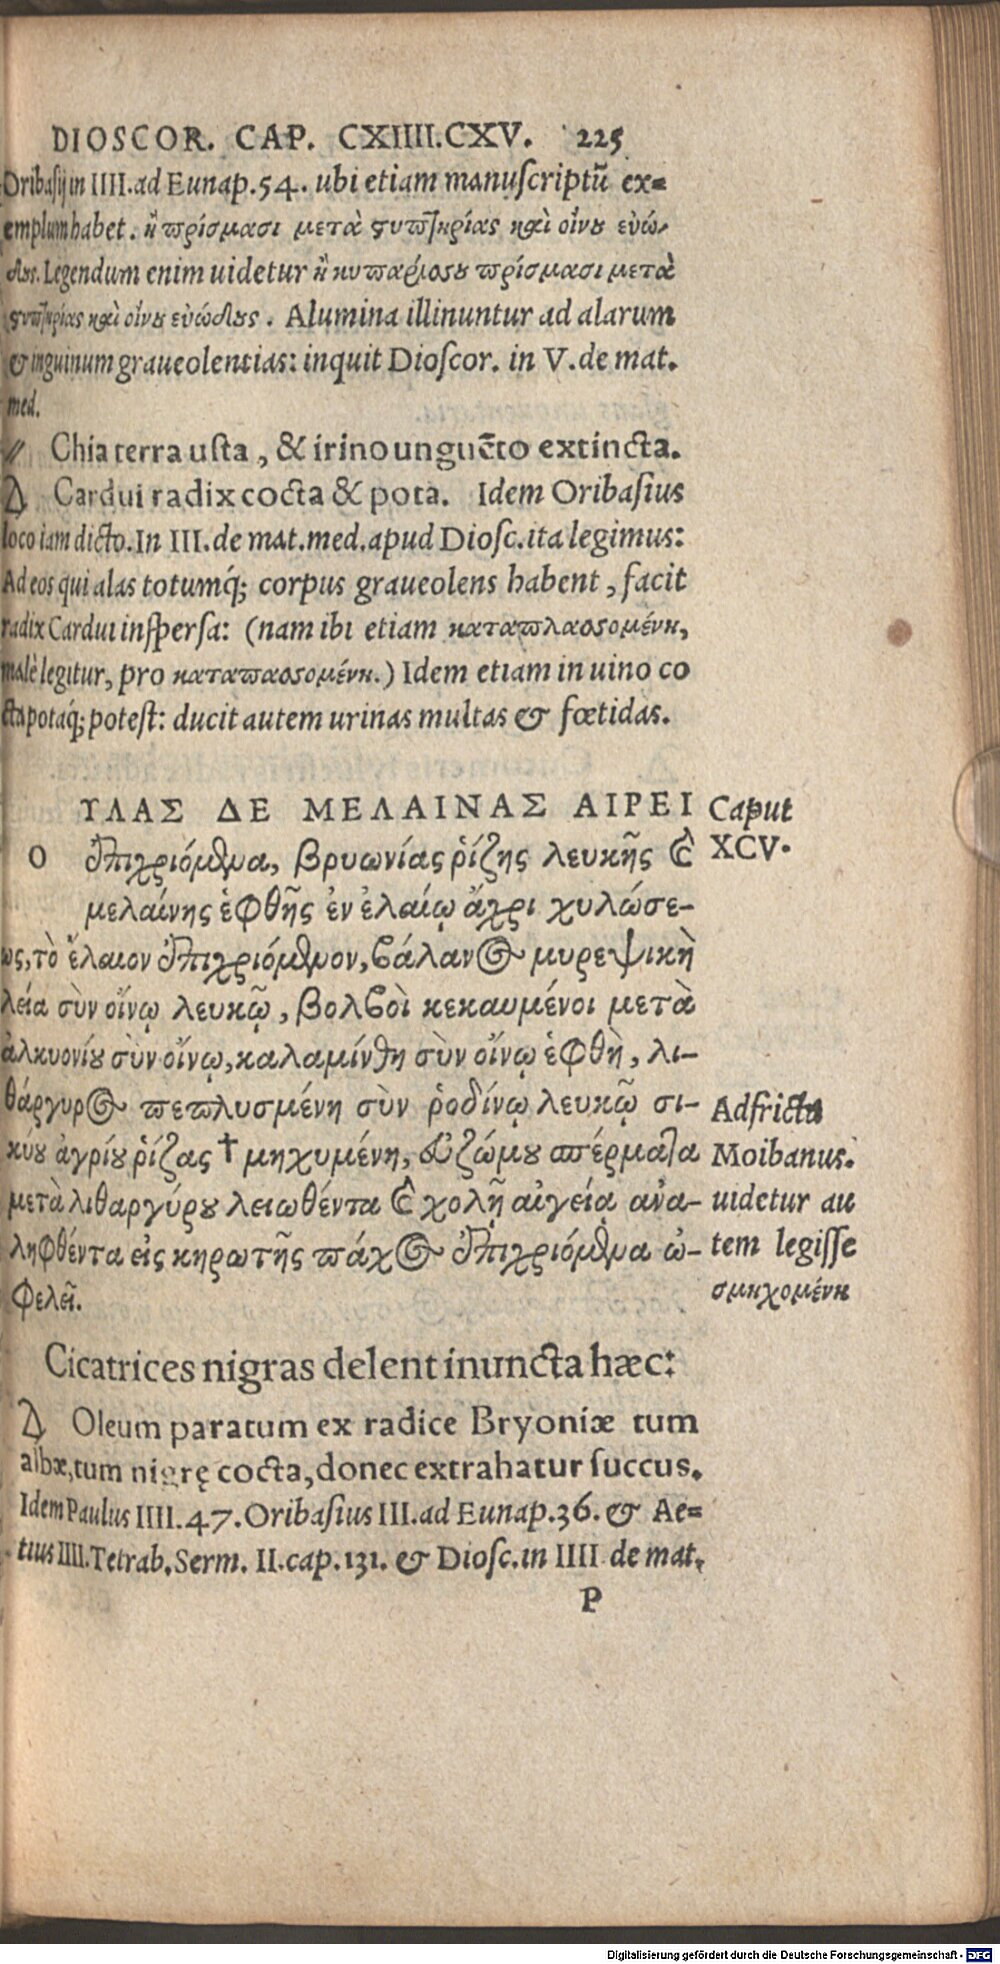 DIOSCOR. CAP. CXIIII.CXV. 225
Oribasij in IIII. ad Eunap. 54. ubi etiam manuscriptũ ex=
emplum habet. ἢ πρίσμασι μετὰ στυπτηρίας καὶ οἴνου εὐώ-
δους. Legendum enim uidetur ἢ κυπαρίσσου πρίσμασι μετὰ
στυπτηρίας καὶ οἴνου εὐώδους. Alumina illinuntur ad alarum
& inguinum graueolentias: inquit Dioscor. in V. de mat.
med.
// Chia terra usta, & irino unguẽto extincta.
Δ Cardui radix cocta & pota. Idem Oribasius
loco iam dicto. In III. de mat. med. apud Diosc. ita legimus:
Ad eos qui alas totumq́; corpus graueolens habent, facit
radix Cardui inspersa: (nam ibi etiam καταπλασσομένη,
malè legitur, pro καταπασσομένη.) Idem etiam in uino co
cta potaq́; potest: ducit autem urinas multas & fœtidas.
ΥΛΑΣ ΔΕ ΜΕΛΑΙΝΑΣ ΑΙΡΕΙ
Ο ἐπιχριόμενα, βρυωνίας ῥίζης λευκῆς καὶ
μελαίνης ἑφθῆς ἐν ἐλαίῳ ἄχρι χυλώσε-
ως, τὸ ἔλαιον ἐπιχριόμενον, βάλανος μυρεψικὴ
λεία σὺν οἴνῳ λευκῷ, βολβοὶ κεκαυμένοι μετὰ
ἀλκυονίου σὺν οἴνῳ, καλαμίνθη σὺν οἴνῳ ἑφθὴ, λι-
θάργυρος πεπλυσμένη σὺν ῥοδίνῳ λευκῷ σι-
κύου ἀγρίου ῥίζας † μηχυμένη, εὐζώμου σπέρματα
μετὰ λιθαργύρου λειωθέντα καὶ χολῇ αἰγείᾳ ἀνα-
ληφθέντα εἰς κηρωτῆς πάχος ἐπιχριόμενα ὠ-
φελεῖ.
Caput
XCV.
Adfricta
Moibanus.
uidetur au
tem legisse
σμηχομένη
Cicatrices nigras delent inuncta hæc:
Δ Oleum paratum ex radice Bryoniæ tum
albæ, tum nigrę cocta, donec extrahatur succus.
Idem Paulus IIII. 47. Oribasius III. ad Eunap. 36. & Ae=
tius IIII. Tetrab. Serm. II. cap. 131. & Diosc. in IIII de mat.
P
Digitalisierung gefördert durch die Deutsche Forschungsgemeinschaft - DFG